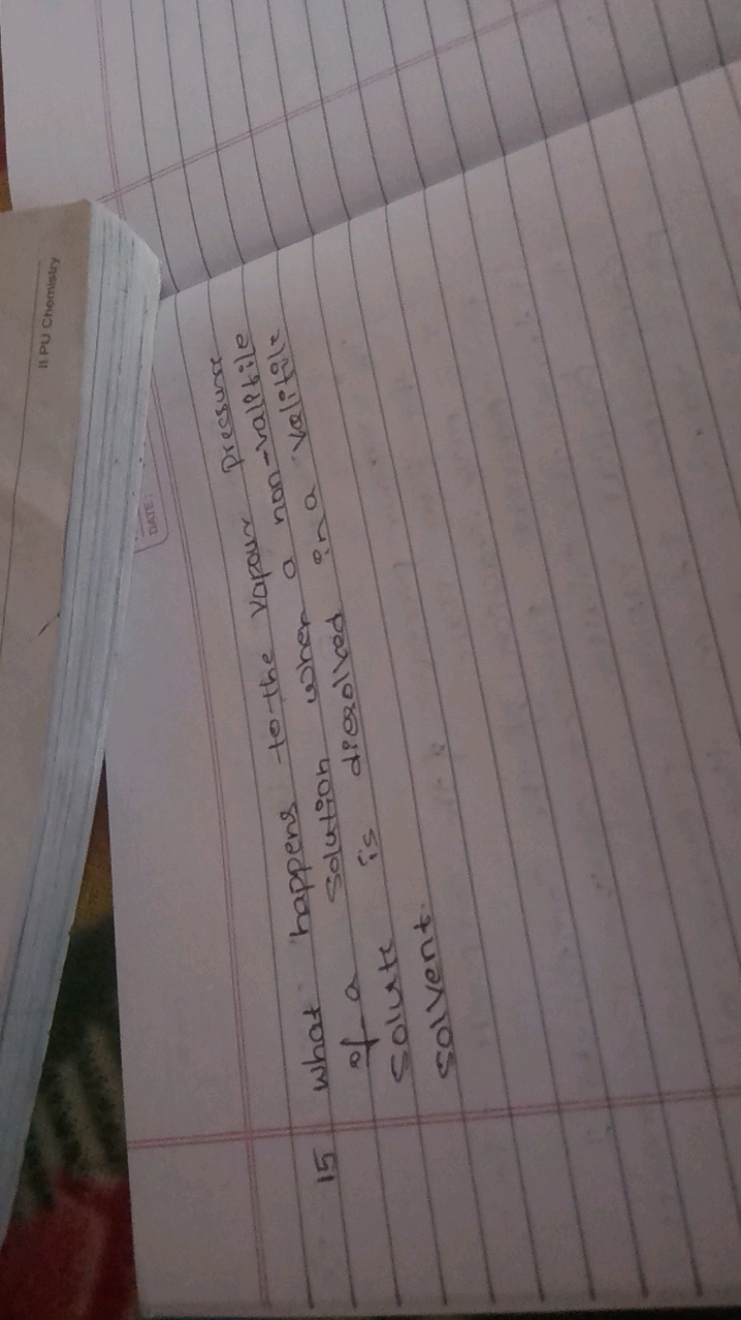 II PU Chemistry
DATE:
15 what happens to the vapour pressure
of a solution when a non-valitile
solute is dissolved in a valitile
solvent.